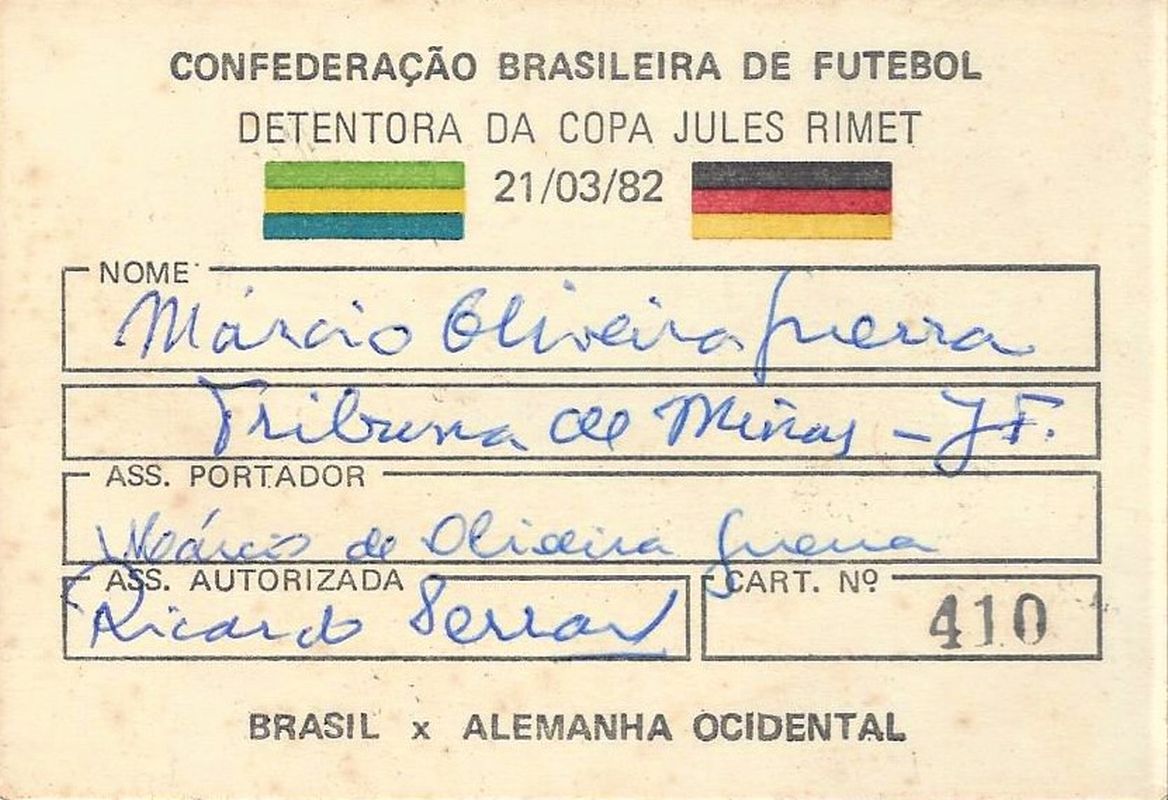 CONFEDERAÇÃO BRASILEIRA DE FUTEBOL
DETENTORA DA COPA JULES RIMET
21/03/82
NOME
Márcio Oliveira Guerra
Tribuna de Minas - J.F.
ASS. PORTADOR
Márcio de Oliveira Guerra
ASS. AUTORIZADA
Ricardo
CART. Nº
410
BRASIL x ALEMANHA OCIDENTAL